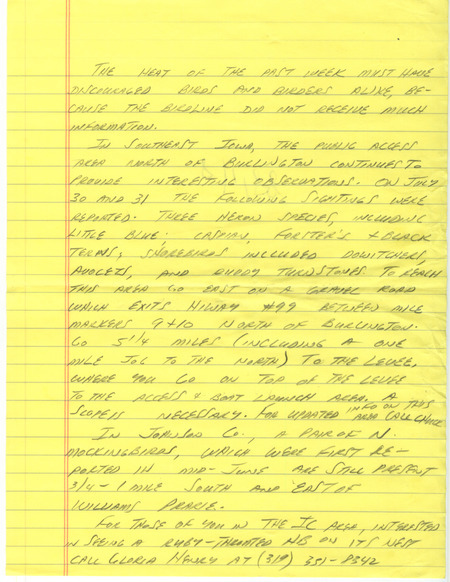 THE HEAT OF THE PAST WEEK MUST HAVE
DISCOURAGED BIRDS AND BIRDERS ALIKE, BE-
CAUSE THE BIRDLINE DID NOT RECEIVE MUCH
INFORMATION.
IN SOUTHEAST IOWA, THE PUBLIC ACCESS
AREA NORTH OF BURLINGTON CONTINUES TO
PROVIDE INTERESTING OBSERVATIONS. ON JULY
30 AND 31 THE FOLLOWING SIGHTINGS WERE
REPORTED. THREE HERON SPECIES, INCLUDING
LITTLE BLUE; CASPIAN, FORSTER'S + BLACK
TERNS; SHOREBIRDS INCLUDED DOWITCHERS,
AVOCETS, AND RUDDY TURNSTONES. TO REACH
THIS AREA GO EAST ON A GRAVEL ROAD
WHICH EXITS HIWAY #99 BETWEEN MILE
MARKERS 9+10 NORTH OF BURLINGTON.
GO 5 1/4 MILES (INCLUDING A ONE
MILE JOG TO THE NORTH) TO THE LEVEE,
WHERE YOU GO ON TOP OF THE LEVEE
TO THE ACCESS & BOAT LAUNCH AREA. A
SCOPE IS NECESSARY. FOR UPDATED INFO ON THIS AREA CALL CHUCK
IN JOHNSON CO., A PAIR OF N.
MOCKINGBIRDS, WHICH WERE FIRST RE-
PORTED IN MID-JUNE ARE STILL PRESENT
3/4 - 1 MILE SOUTH AND EAST OF
WILLIAMS PRARIE.
FOR THOSE OF YOU IN THE IC AREA, INTERESTED
IN SEEING A RUBY-THROATED HB ON ITS NEST
CALL GLORIA HENRY AT (319) 351-8342